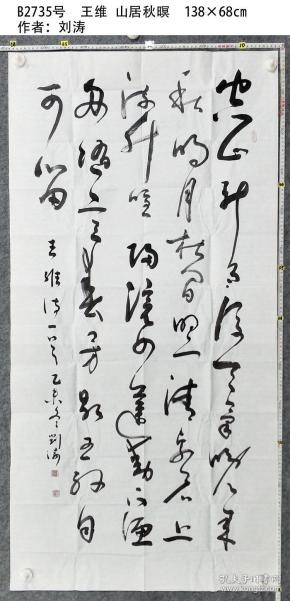 B2735号 王维 山居秋暝 138×68cm
作者：刘涛
空山新雨後天氣晚来
秋明月松間照清泉石上
流竹喧歸浣女蓮動下漁
舟随意春芳歇王孫自
可留
王維诗一首乙未冬劉濤
孔夫子旧书网